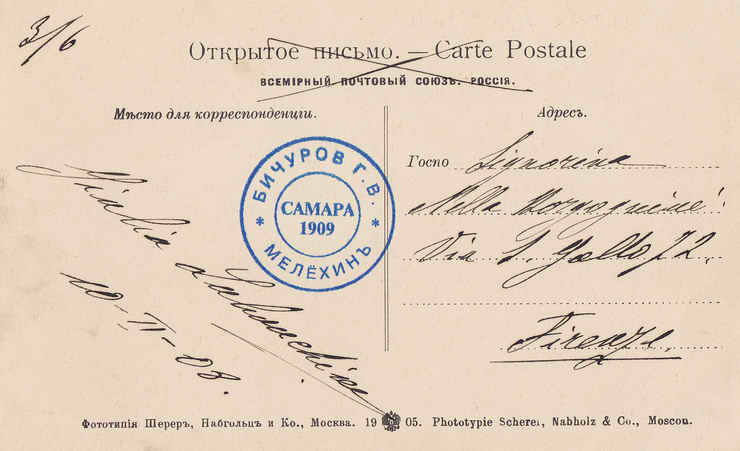 3/6
Открытое письмо. — Carte Postale
ВСЕМІРНЫЙ ПОЧТОВЫЙ СОЮЗЪ. РОССІЯ.
Мѣсто для корреспонденціи.
Адресъ.
Госпо Signorina
Nella
Via S. Gallo 72.
Firenze
Giulia
10-II-08.
* БИЧУРОВ Г. В. *
САМАРА
1909
МЕЛЁХИНЪ
Фототипія Шереръ, Набгольцъ и Ко., Москва. 1905. Phototypie Scherer, Nabholz & Co., Moscou.